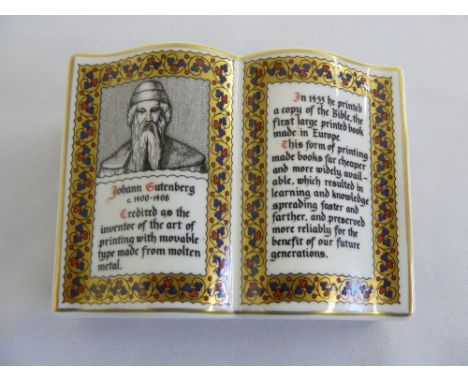 Johann Gutenberg
c. 1400-1468
Credited as the
inventor of the art of
printing with movable
type made from molten
metal.
In 1455 he printed
a copy of the Bible, the
first large printed book
made in Europe.
This form of printing
made books far cheaper
and more widely avail-
able, which resulted in
learning and knowledge
spreading faster and
farther, and preserved
more reliably for the
benefit of our future
generations.